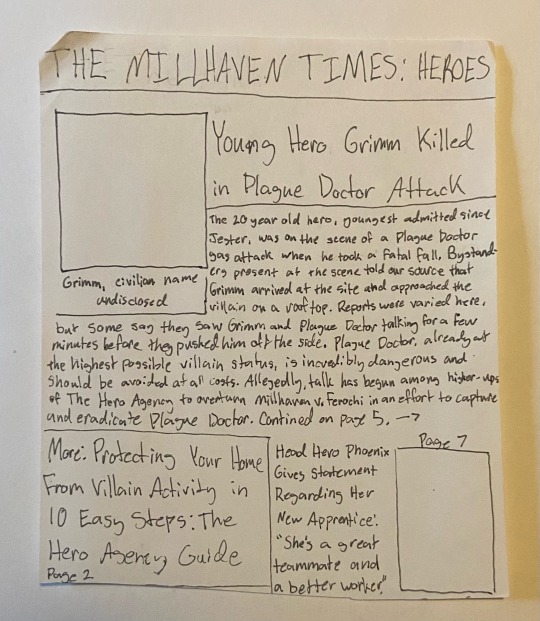 THE MILLHAVEN TIMES: HEROES
Young Hero Grimm Killed
in Plague Doctor Attack
Grimm, civilian name
undisclosed
The 20 year old hero, youngest admitted since
Jester, was on the scene of a Plague Doctor
gas attack when he took a fatal fall. Bystand-
ers present at the scene told our source that
Grimm arrived at the site and approached the
villain on a rooftop. Reports were varied here,
but some say they saw Grimm and Plague Doctor talking for a few
minutes before they pushed him off the side. Plague Doctor, already at
the highest possible villain status, is incredibly dangerous and
should be avoided at all costs. Allegedly, talk has begun among higher-ups
of The Hero Agency to overturn Millhaven v. Ferochi in an effort to capture
and eradicate Plague Doctor. Contined on page 5. →
More: Protecting Your Home
From Villain Activity in
10 Easy Steps: The
Hero Agency Guide
Page 2
Head Hero Phoenix
Gives Statement
Regarding Her
New Apprentice:
"She's a great
teammate and
a better worker."
Page 7